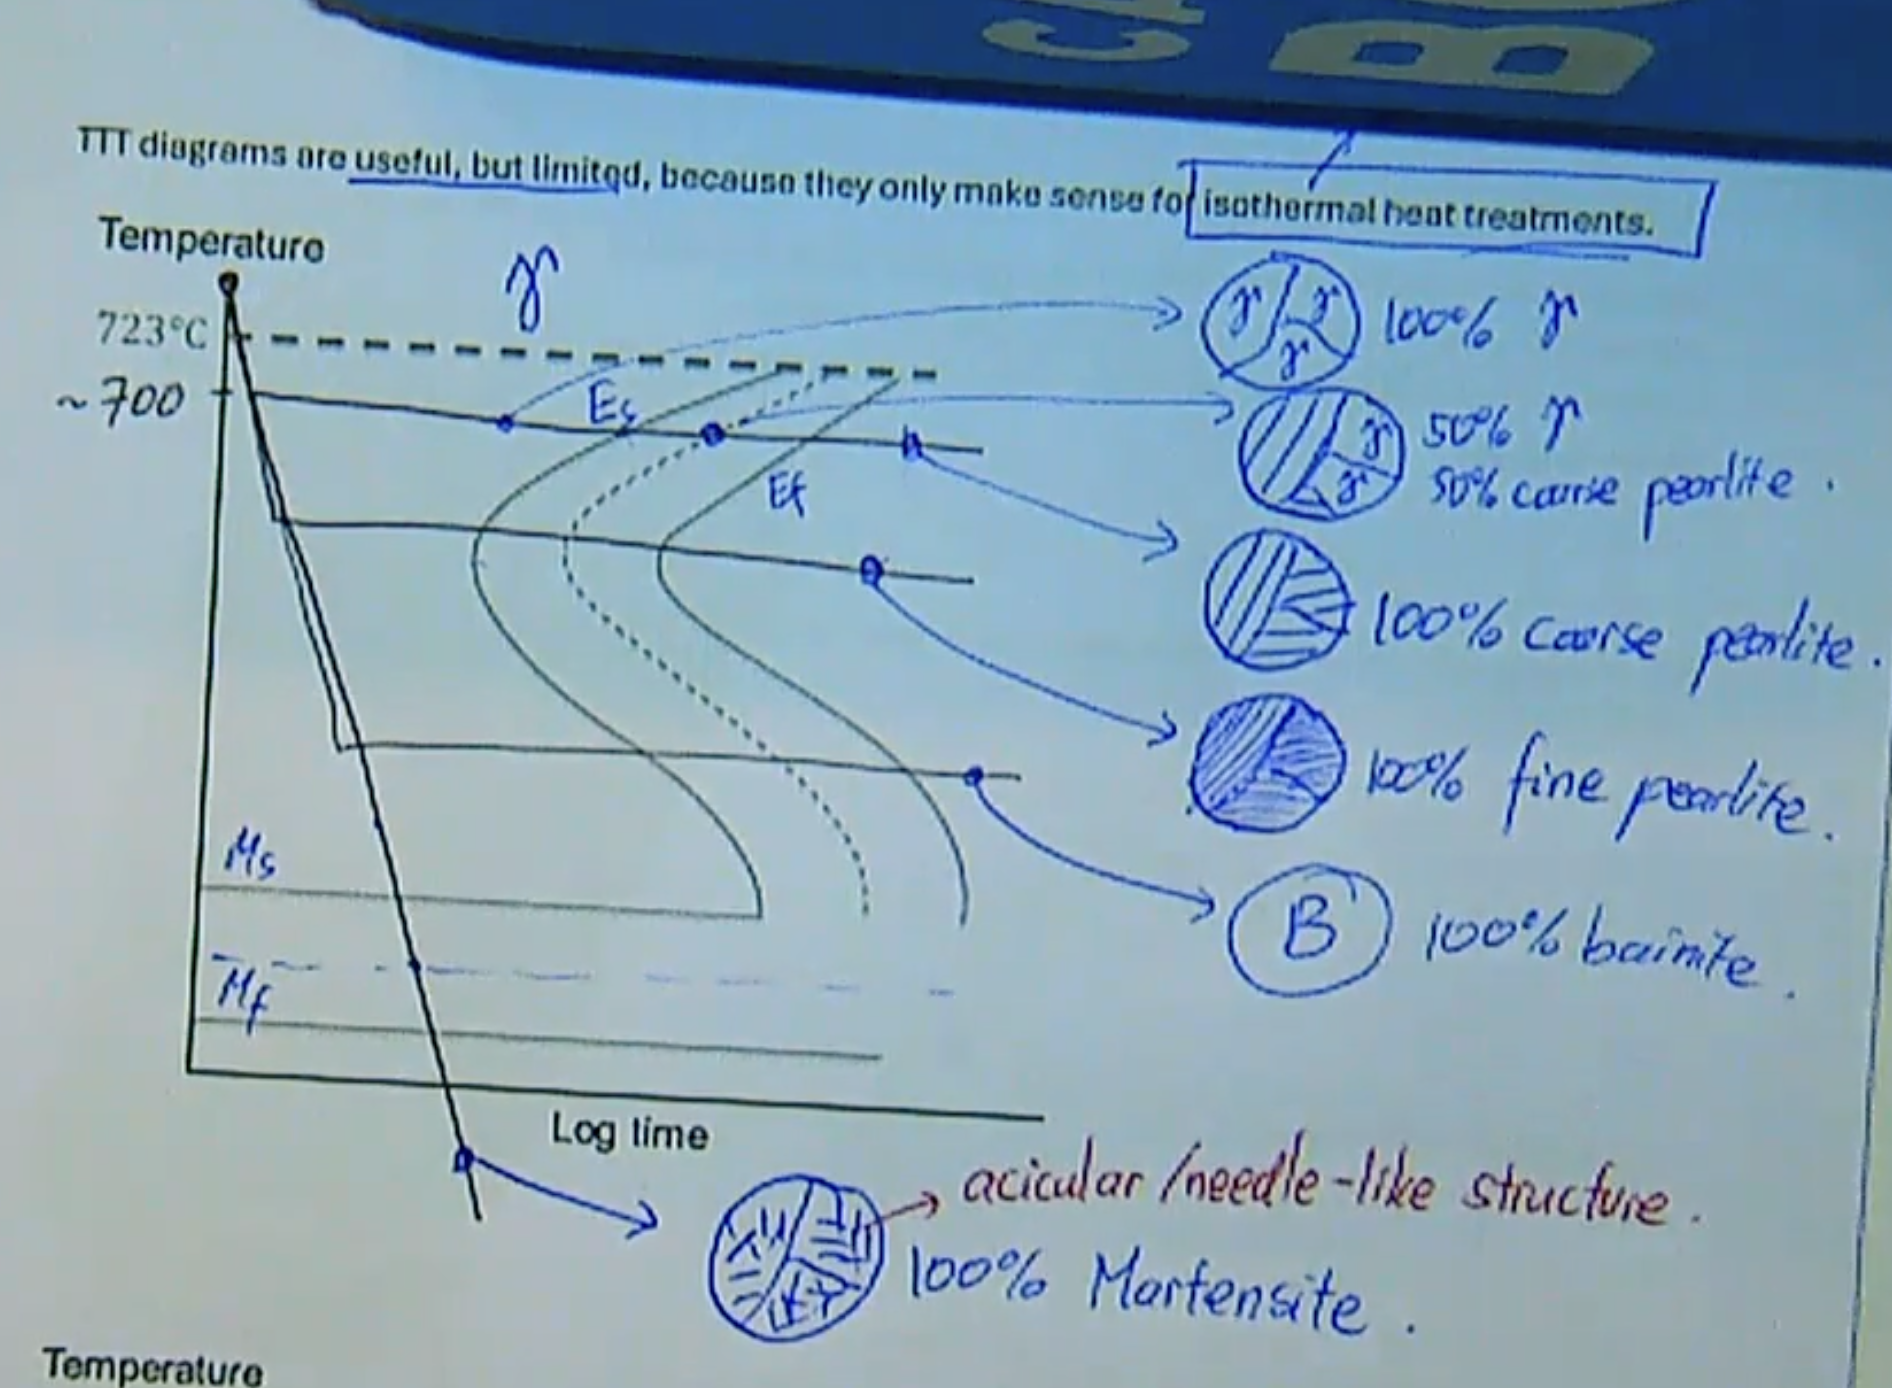 TTT diagrams are useful, but limited, because they only make sense for isothermal heat treatments.
Temperature
γ
723°C
~700
Es
Ef
γ γ γ 100% γ
γ γ 50% γ
50% coarse pearlite.
100% coarse pearlite.
100% fine pearlite.
B 100% bainite.
Ms
Mf
Log time
acicular/needle-like structure.
100% Martensite.
Temperature